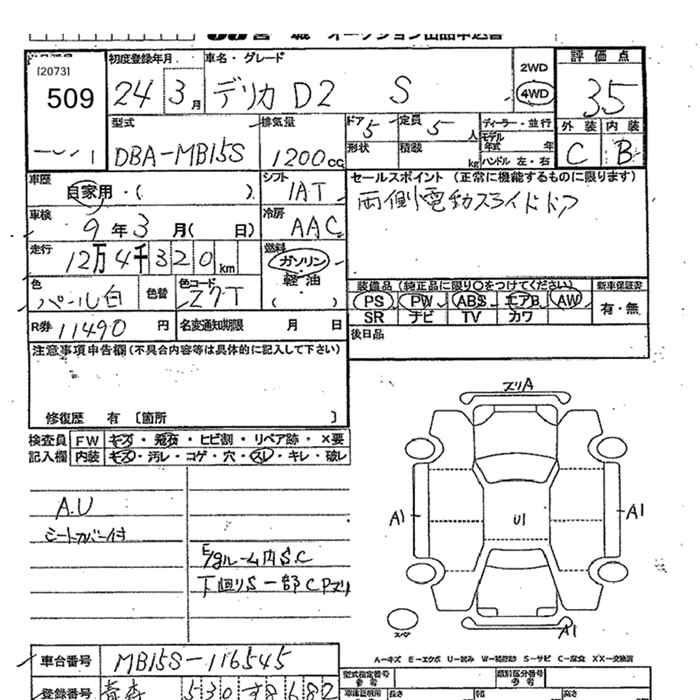 [2073]
509
初度登録年月 車名・グレード
24 3月 デリカD2 S
2WD
4WD
評価点
3.5
外装 内装
C B
型式
DBA-MB15S
排気量
1200cc
ドア 5 定員 5人
形状 積載 kg
ディーラー・並行
モデル年式 年
ハンドル 左・右
車歴
自家用・( )
シフト
IAT
セールスポイント (正常に機能するものに限ります)
両側電動スライドドア
車検
9年3月( 日)
冷房
AAC
走行
12万4千320km
燃料
ガソリン
軽油
( )
色
パール白
色替
色コード
Z7T
装備品 (純正品に限り○をつけてください) 新車保証書
PS PW ABS エアB AW
SR ナビ TV カワ
有・無
R券 11490円
名変通知期限 月 日
後日品
注意事項申告欄 (不具合内容等は具体的に記入して下さい)
修復歴 有 〔箇所 〕
検査員 FW キズ・飛石・ヒビ割・リペア跡・×要
記入欄 内装 キズ・汚レ・コゲ・穴・スレ・キレ・破レ
A.U
シートカバー付
E/gルーム内S.C
下回りS 一部CPズリ
ズリA
A1
U1
A1
A1
スペア
A-キズ E-エクボ U-凹み W-補修跡 S-サビ C-腐食 XX-交換済
車台番号 MB15S-116545
登録番号 青森 530 す8682
型式指定番号 類別区分番号
長さ 幅 高さ